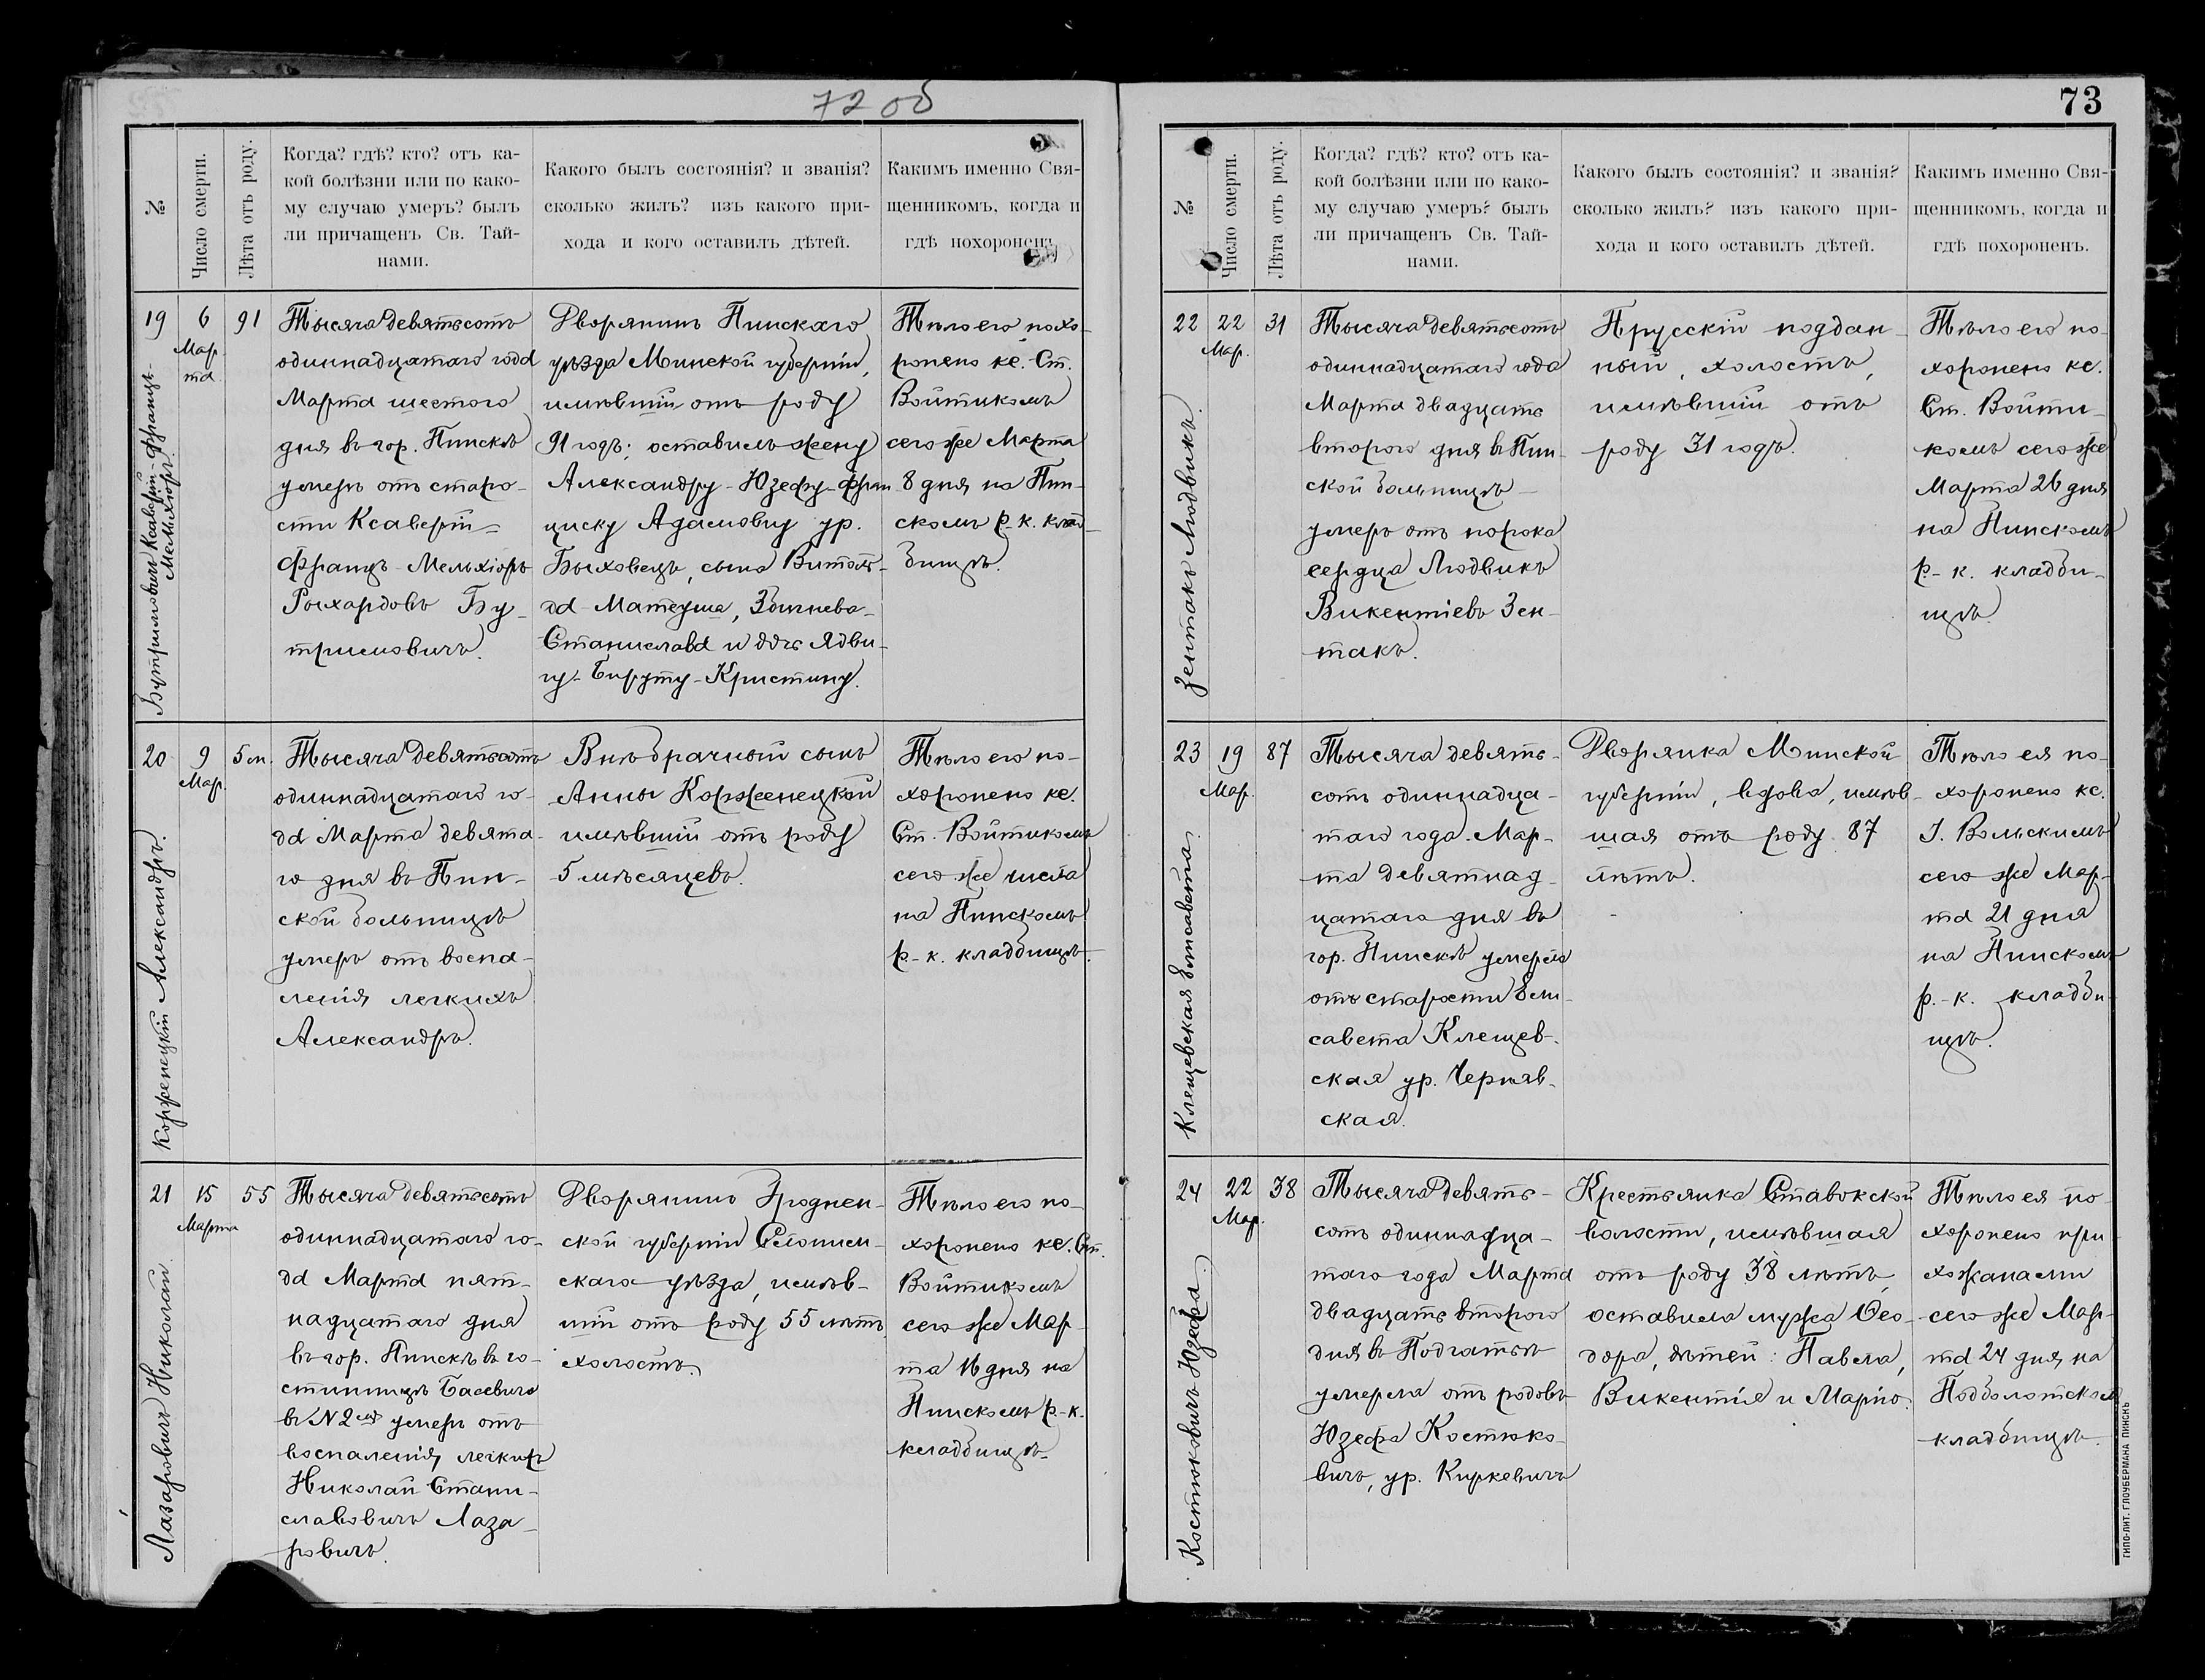 72 об
№
Число смерти.
Лѣта отъ роду.
Когда? гдѣ? кто? отъ ка-
кой болѣзни или по како-
му случаю умеръ? былъ
ли причащенъ Св. Тай-
нами.
Какого былъ состоянія? и званія?
сколько жилъ? изъ какого при-
хода и кого оставилъ дѣтей.
Какимъ именно Свя-
щенникомъ, когда и
гдѣ похороненъ.
19
Бутримовичъ Ксаверій-Францъ-
Мельхіоръ.
6
Мар-
та
91
Тысяча девятьсотъ
одиннадцатаго года
Марта шестого
дня въ гор. Пинскѣ
умеръ отъ старо-
сти Ксаверій-
Францъ-Мельхіоръ
Рыхардовъ Бу-
тримовичъ.
Дворянинъ Пинскаго
уѣзда Минской губерніи,
имѣвшій отъ роду
91 годъ; оставилъ жену
Александру-Юзефу-Фран-
циску Адамовну ур.
Быховецъ, сына Витоль-
да-Матеуша, Збигнева-
Станислава и дочь Ядви-
гу-Бируту-Кристину.
Тѣло его похо-
ронено кс. Ст.
Войтикомъ
сего же Марта
8 дня на Пин-
скомъ р.-к. клад-
бищѣ.
20
Корженецкій Александръ.
9
Мар.
5 м.
Тысяча девятьсотъ
одиннадцатаго го-
да Марта девята-
го дня въ Пин-
ской больницѣ
умеръ отъ воспа-
ленія легкихъ
Александръ.
Внѣбрачный сынъ
Анны Корженецкой
имѣвшій отъ роду
5 мѣсяцевъ.
Тѣло его по-
хоронено кс.
Ст. Войтикомъ
сего же числа
на Пинскомъ
р.-к. кладбищѣ.
21
Лазаровичъ Николай
15
Марта
55
Тысяча девятьсотъ
одиннадцатаго го-
да Марта пят-
надцатаго дня
въ гор. Пинскѣ въ го-
стинницѣ Басевича
въ N 2омъ умеръ отъ
воспаленія легкихъ
Николай Стани-
славовичъ Лаза-
ровичъ.
Дворянинъ Гроднен-
ской губерніи Слоним-
скаго уѣзда, имѣв-
шій отъ роду 55 лѣтъ
холостъ.
Тѣло его по-
хоронено кс. Ст.
Войтикомъ
сего же Мар-
та 16 дня на
Пинскомъ р.-к.
кладбищѣ.
73
№
Число смерти.
Лѣта отъ роду.
Когда? гдѣ? кто? отъ ка-
кой болѣзни или по како-
му случаю умеръ? былъ
ли причащенъ Св. Тай-
нами.
Какого былъ состоянія? и званія?
сколько жилъ? изъ какого при-
хода и кого оставилъ дѣтей.
Какимъ именно Свя-
щенникомъ, когда и
гдѣ похороненъ.
22
Зентакъ Людвикъ.
22
Мар.
31
Тысяча девятьсотъ
одиннадцатаго года
Марта двадцать
второго дня въ Пин-
ской больницѣ
умеръ отъ порока
сердца Людвикъ
Викентіевъ Зен-
такъ.
Прусскій поддан-
ный, холостъ,
имѣвшій отъ
роду 31 годъ.
Тѣло его по-
хоронено кс.
Ст. Войти-
комъ сего же
Марта 26 дня
на Пинскомъ
р.-к. кладби-
щѣ.
23
Клещевская Елисавета.
19
Мар.
87
Тысяча девять-
сотъ одиннадца-
таго года Мар-
та девятнад-
цатаго дня въ
гор. Пинскѣ умерла
отъ старости Ели-
савета Клещев-
ская ур. Черняв-
ская.
Дворянка Минской
губерніи, вдова, имѣв-
шая отъ роду 87
лѣтъ.
Тѣло ея по-
хоронено кс.
І. Вольскимъ
сего же Мар-
та 21 дня
на Пинскомъ
р.-к. кладби-
щѣ.
24
Костюковичъ Юзефа.
22
Мар.
38
Тысяча девять-
сотъ одиннадца-
таго года Марта
двадцать второго
дня въ Подгатьѣ
умерла отъ родовъ
Юзефа Костюко-
вичъ, ур. Киркевичъ
Крестьянка Ставокской
волости, имѣвшая
отъ роду 38 лѣтъ,
оставила мужа Ѳео-
дора, дѣтей: Павла,
Викентія и Марію.
Тѣло ея по-
хоронено при-
хожанами
сего же Мар-
та 24 дня на
Подболотском
кладбищѣ.
ТИПО-ЛИТ. ГЛОУБЕРМАНА ПИНСКЪ